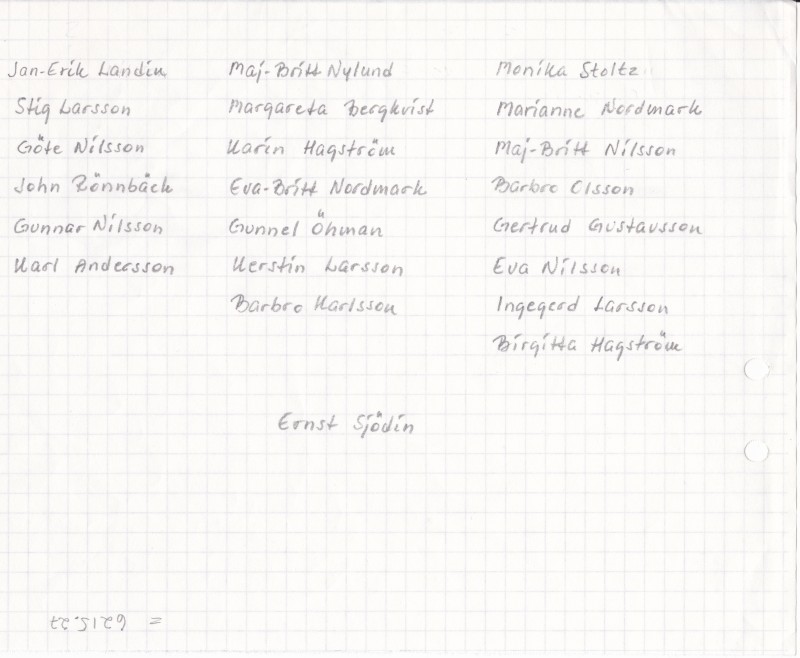 Jan-Erik Landin
Stig Larsson
Göte Nilsson
John Rönnbäck
Gunnar Nilsson
Karl Andersson
Maj-Britt Nylund
Margareta Bergkvist
Karin Hagström
Eva-Britt Nordmark
Gunnel Öhman
Kerstin Larsson
Barbro Karlsson
Monika Stoltz
Marianne Nordmark
Maj-Britt Nilsson
Barbro Olsson
Gertrud Gustavsson
Eva Nilsson
Ingegerd Larsson
Birgitta Hagström
Ernst Sjödin